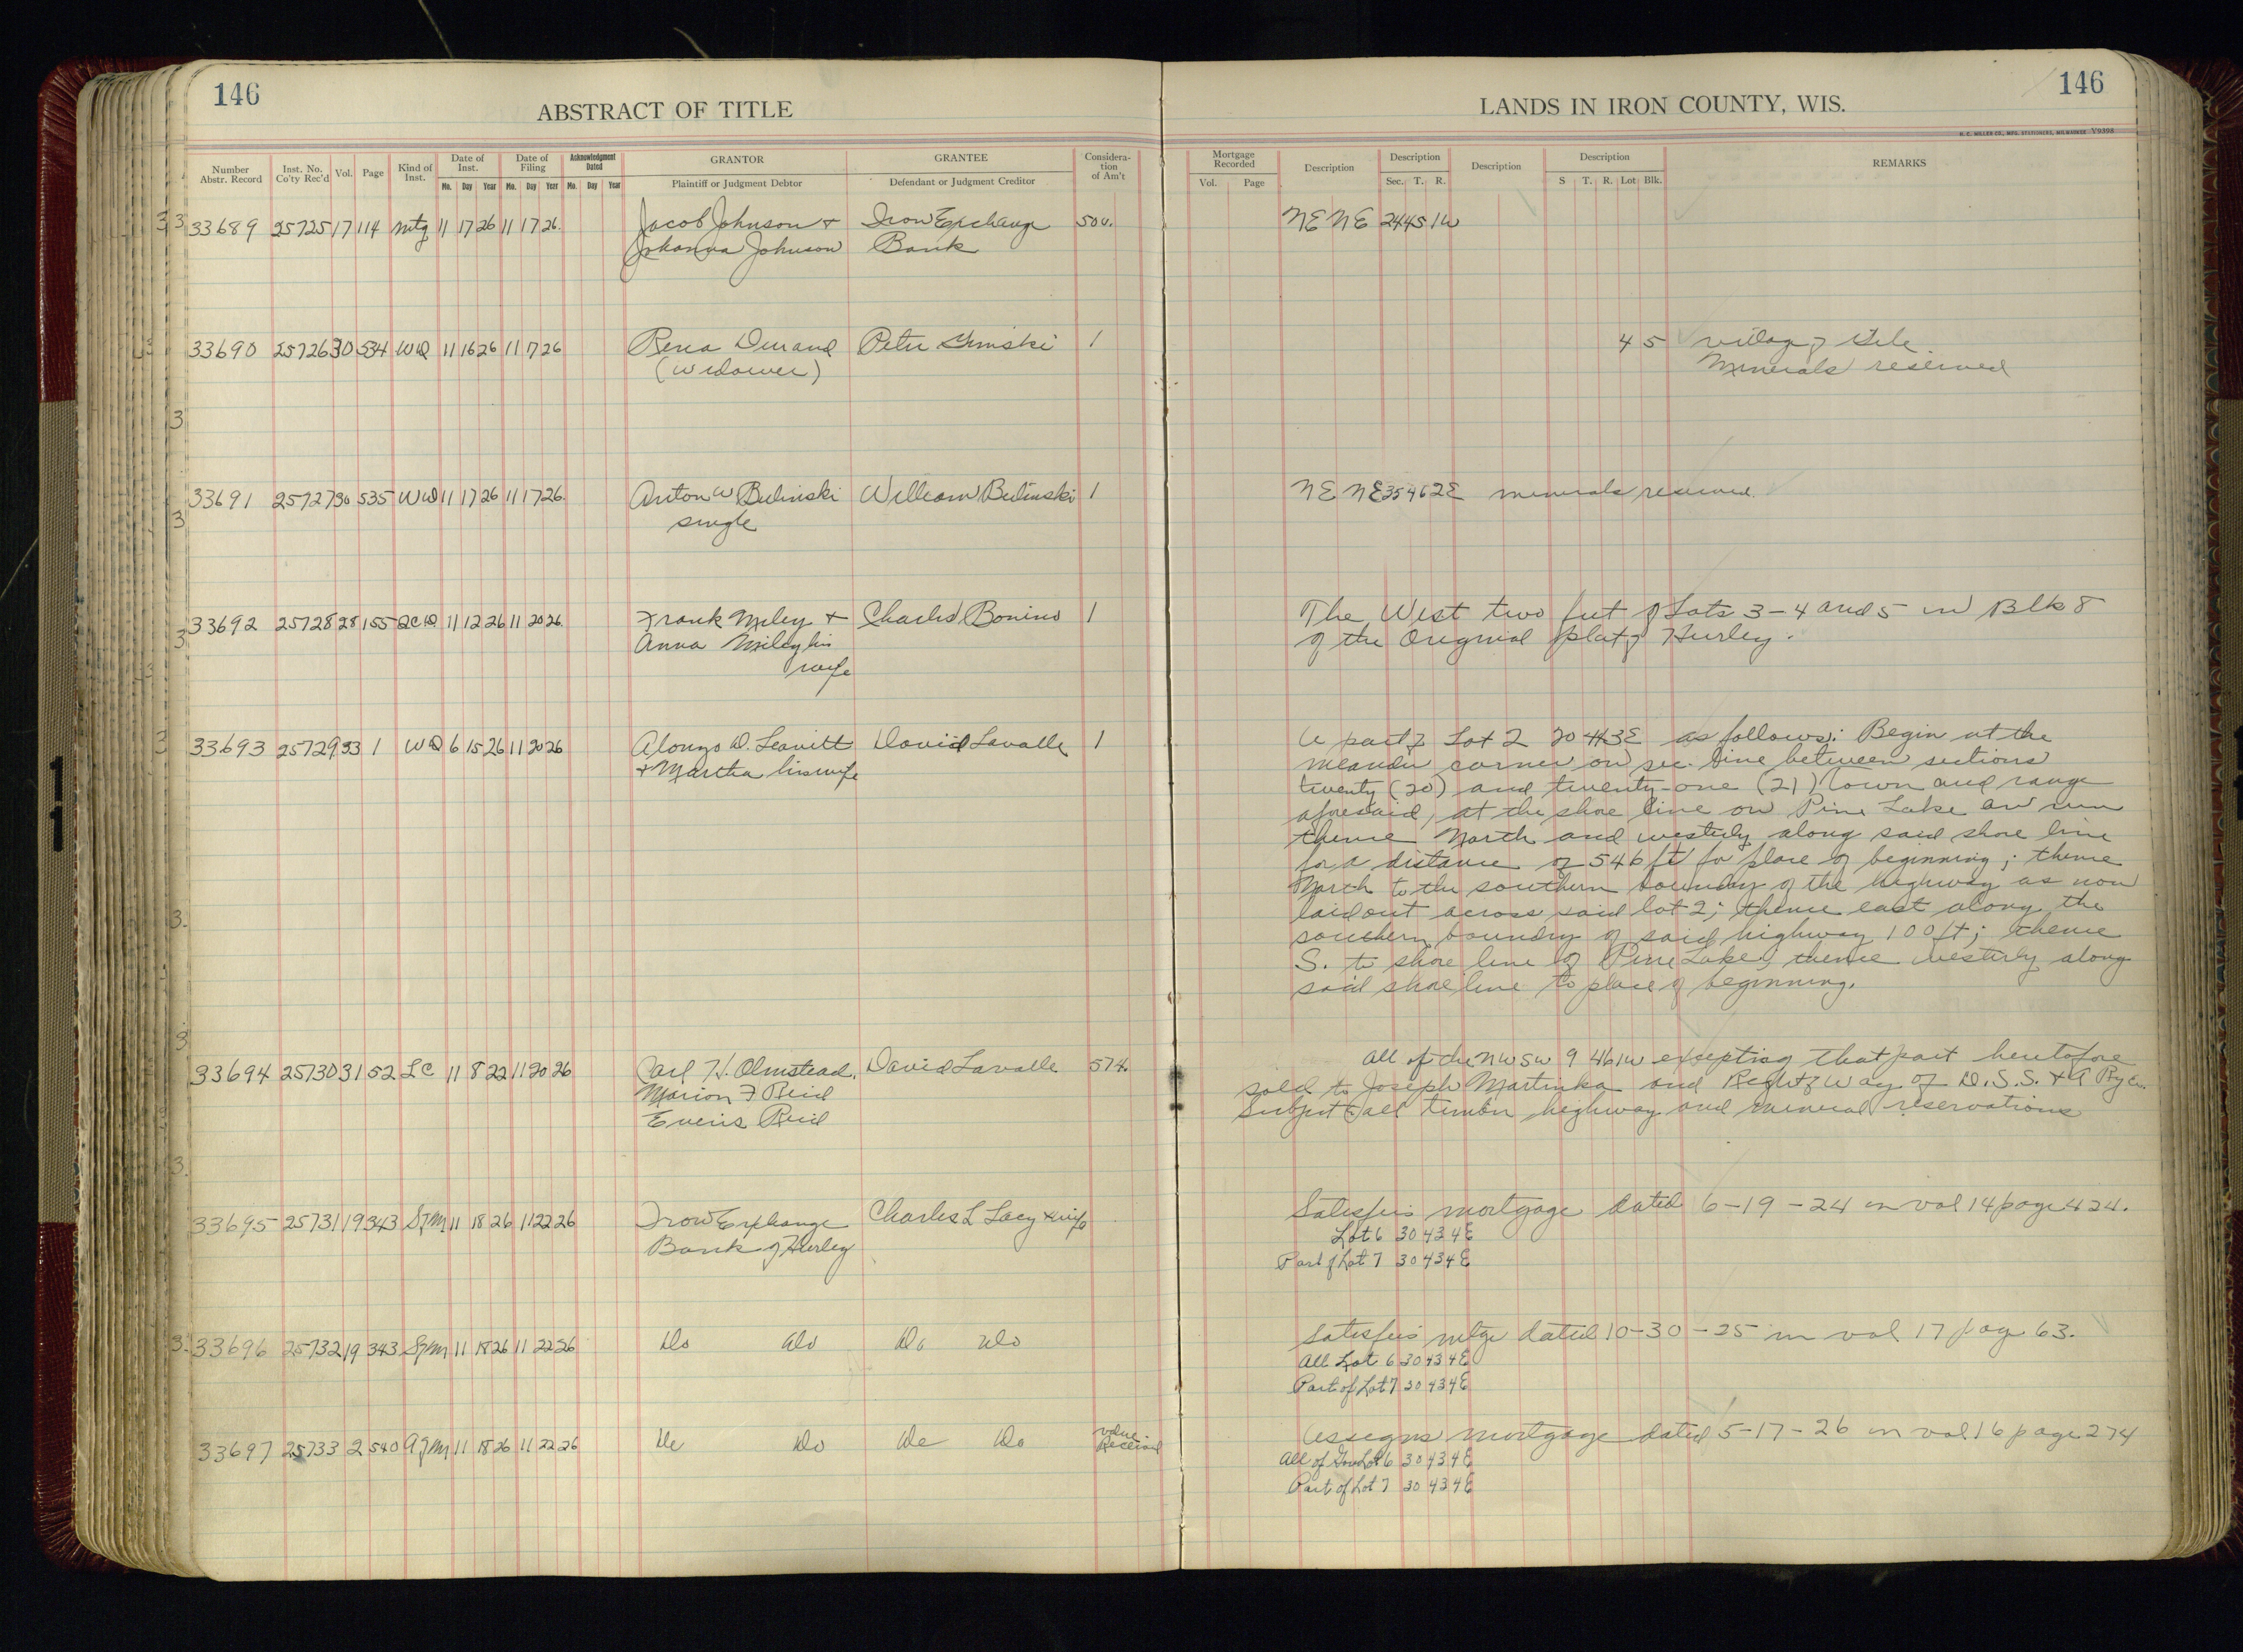 146
ABSTRACT OF TITLE
LANDS IN IRON COUNTY, WIS.
146
H. C. MILLER CO., MFG. STATIONERS, MILWAUKEE V9398
Number Abstr. Record
Inst. No. Co'ty Rec'd
Vol.
Page
Kind of Inst.
Date of Inst.
Mo. Day Year
Date of Filing
Mo. Day Year
Acknowledgment Dated
Mo. Day Year
GRANTOR
Plaintiff or Judgment Debtor
GRANTEE
Defendant or Judgment Creditor
Considera-tion of Am't
Mortgage Recorded
Vol. Page
Description
Description
Sec. T. R.
Description
Description
S T. R. Lot Blk.
REMARKS
33689 25725 17 114 Mtg 11 17 26 11 17 26. Jacob Johnson + Iron Exchange 500. NE NE 24 45 1W
Johanna Johnson Bank
33690 25726 30 534 WD 11 16 26 11 17 26 Durand Peter 1 4 5 Village of Gile
(widower) Minerals reserved
33691 25727 30 535 WD 11 17 26 11 17 26. Anton W Bulinski William Bulinski 1 NE NE 35 46 2E minerals reserved.
single
33692 25728 28 155 QCD 11 12 26 11 20 26. Frank Miley + Charles Bonino 1 The West two feet of Lots 3-4 and 5 in Blk 8
Anna Miley his of the Original plat of Hurley.
wife
33693 25729 33 1 WD 6 15 26 11 20 26 Alonzo D. Leavitt David Lavalle 1 A part of Lot 2 20 43 3E as follows: Begin at the
+ Martha his wife meander corner on sec. line between sections
twenty (20) and twenty-one (21) town and range
aforesaid, at the shore line on Pine Lake an run
thence North and westerly along said shore line
for a distance of 546 ft for place of beginning; thence
North to the southern boundry of the highway as now
laid out across said lot 2; thence east along the
southern boundry of said highway 100 ft; thence
S. to shore line of Pine Lake; thence westerly along
said shore line to place of beginning.
33694 25730 31 52 LC 11 8 22 11 20 26 Carl H. Olmstead, David Lavalle 574. All of the NW SW 9 46 1W excepting that part heretofore
Marion F Reid sold to Joseph Martinka and Right of Way of D.S.S. + A Ry Co.
Reid Subject to all timber highway and mineral reservations
33695 25731 19 343 Sfm 11 18 26 11 22 26 Iron Exchange Charles L Lacy + wife Satisfies mortgage dated 6-19-24 in vol 14 page 424.
Bank of Hurley Lot 6 30 43 4E
Part of Lot 7 30 43 4E
33696 25732 19 343 Sfm 11 18 26 11 22 26 Do Do Do Do Satisfies mtge dated 10-30-25 in vol 17 page 63.
All Lot 6 30 43 4E
Part of Lot 7 30 43 4E
33697 25733 2 540 Afm 11 18 26 11 22 26 Do Do Do Do value Received Assigns mortgage dated 5-17-26 in vol 16 page 274
All of Gov Lot 6 30 43 4E
Part of Lot 7 30 43 4E